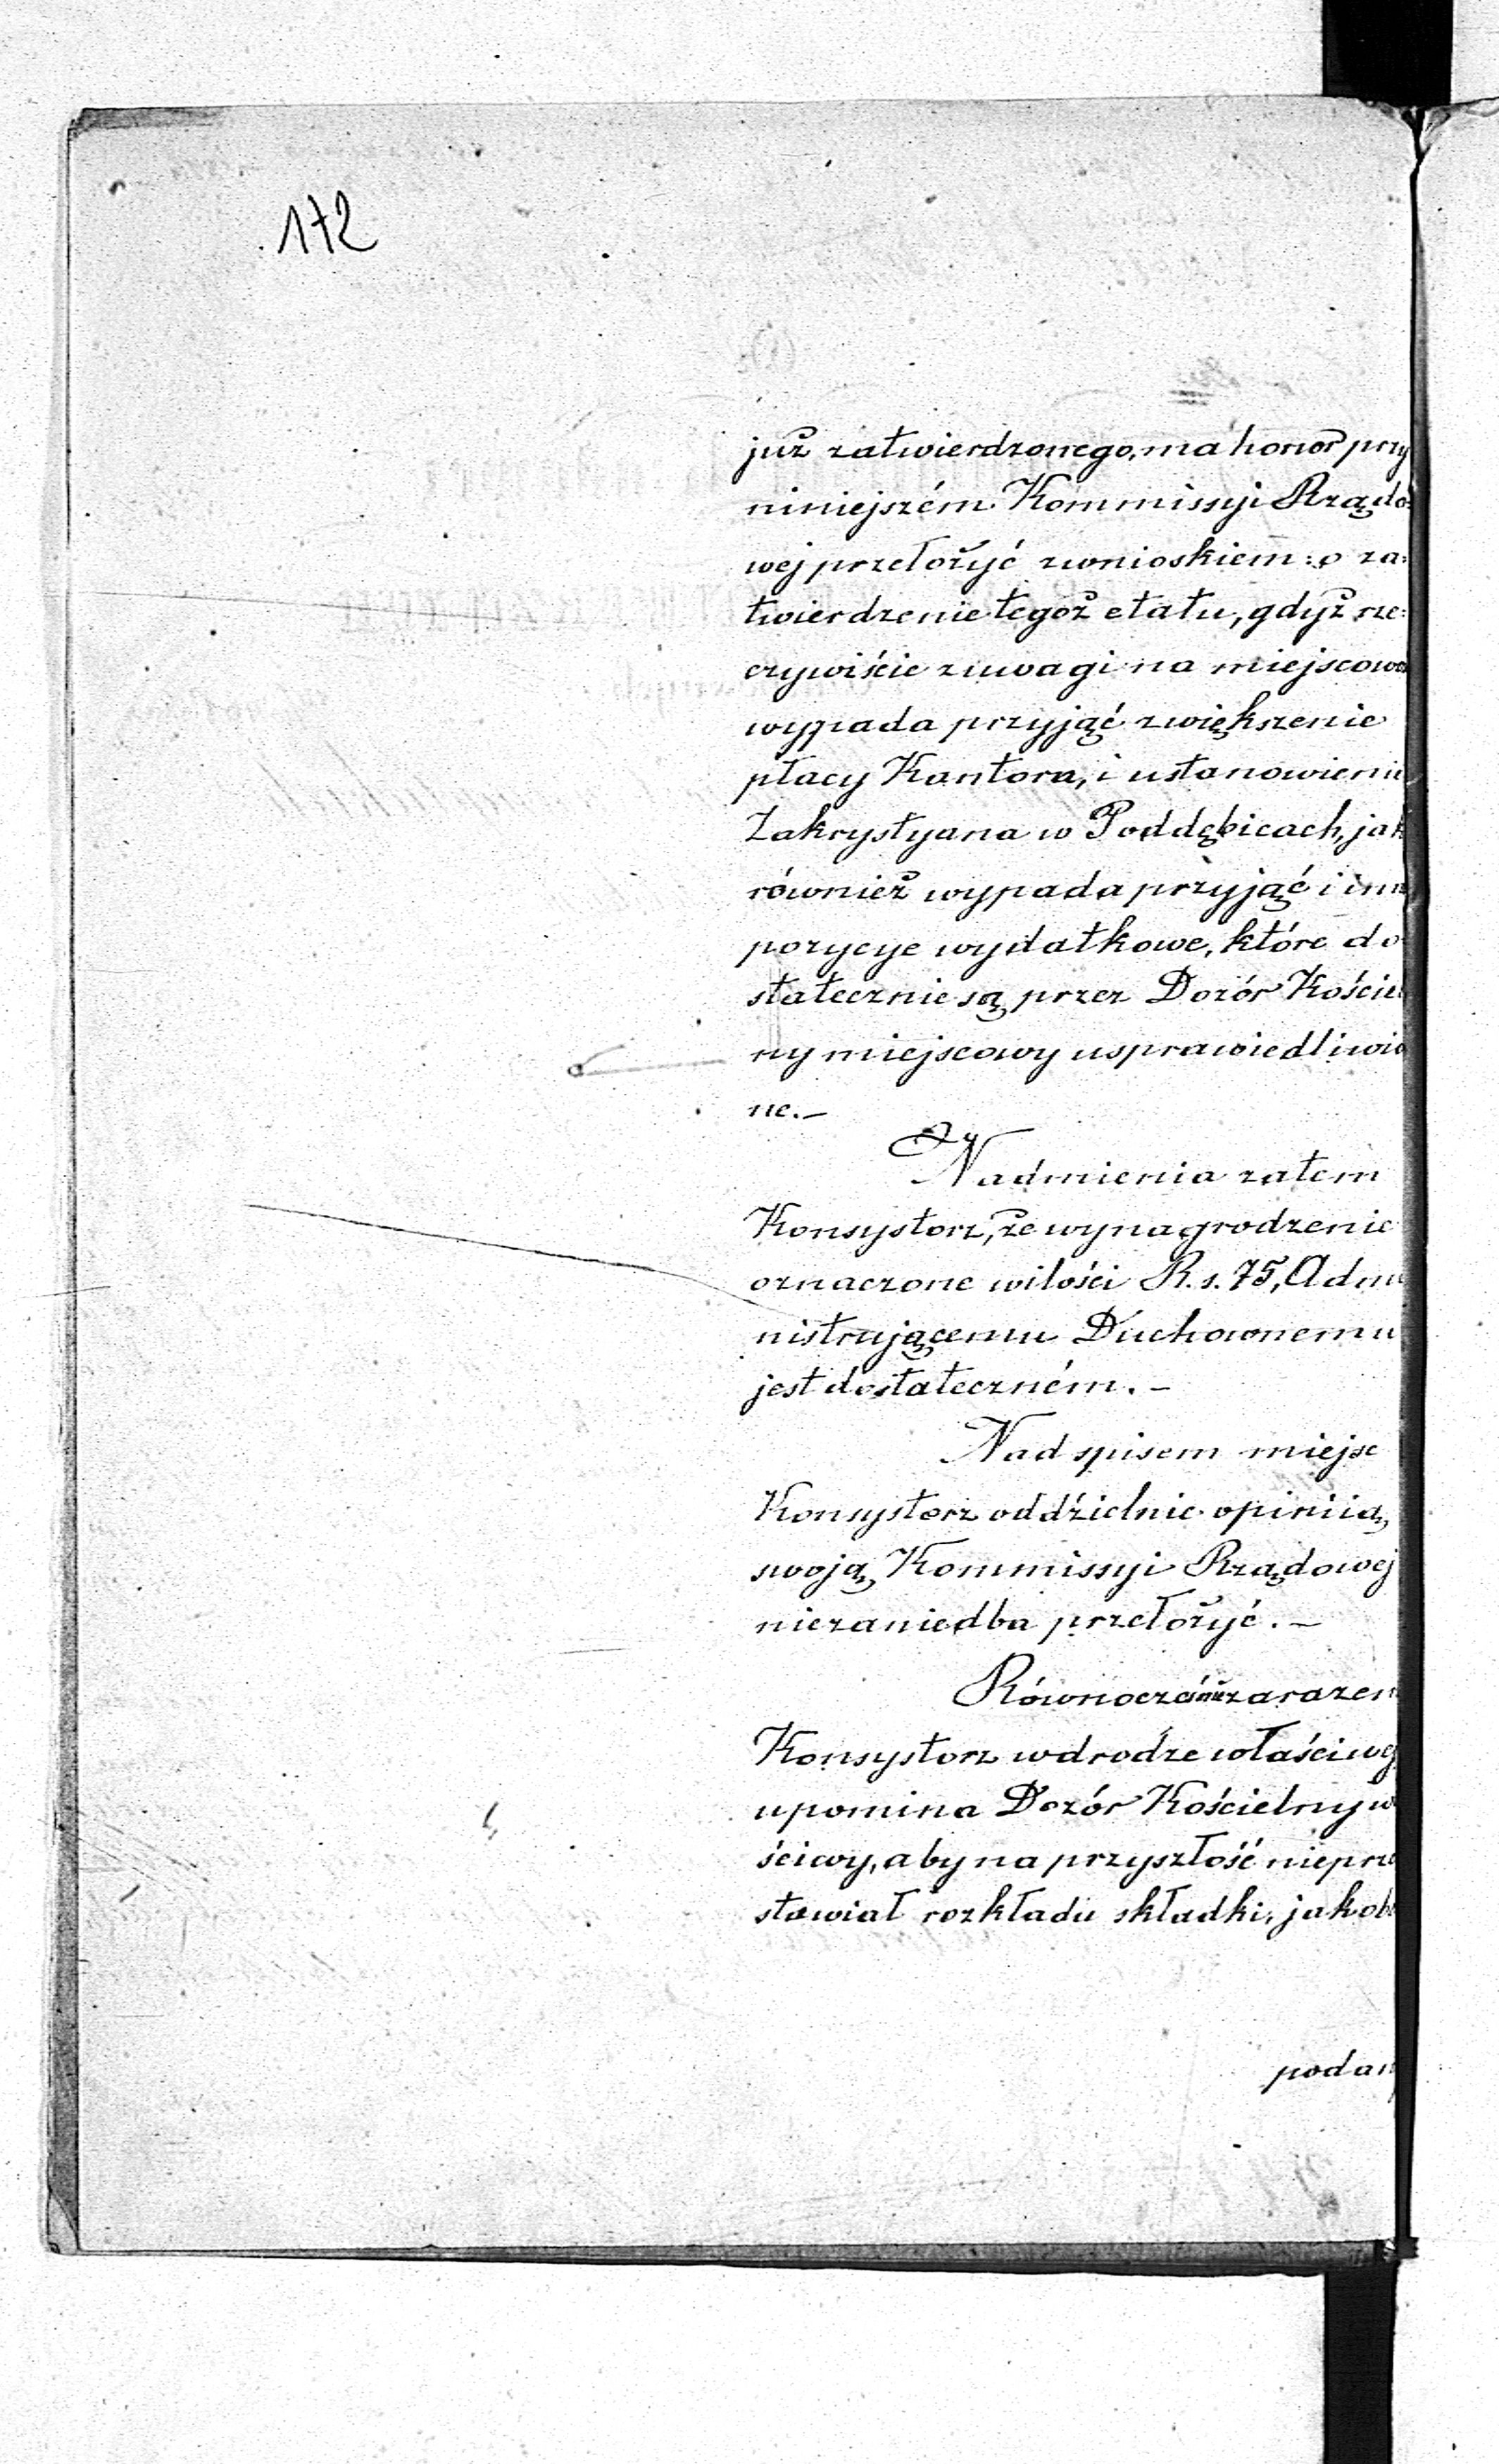 172
już zatwierdzonego, ma honor przy
niniejszém Kommissyi Rządo=
wej przełożyć z wnioskiem: o za=
twierdzenie tegoż etatu, gdyż rze=
czywiście z uwagi na miejscowo
wypada przyjąć zwiększenie
płacy Kantora, i ustanowienie
Zakrystyana w Poddębicach, jak
również wypada przyjąć i inn
pozycye wydatkowe, które do=
statecznie są przez Dozór Kościel
ny miejscowy usprawiedliwio
ne.—
Nadmienia zatem
Konsystorz, że wynagrodzenie
oznaczone w ilości R.s. 75, Admi
nistrującemu Duchownemu
jest dostateczném.—
Nad spisem miejsc
Konsystorz oddzielnie opiniią
swoją Kommissyi Rządowej
niezaniedba przełożyć.—
Równocześnie zarazem
Konsystorz w drodze właściwej
upomina Dozór Kościelny w
ściwy, aby na przyszłość nieprze
stawiał rozkładu składki, jakoby
podan